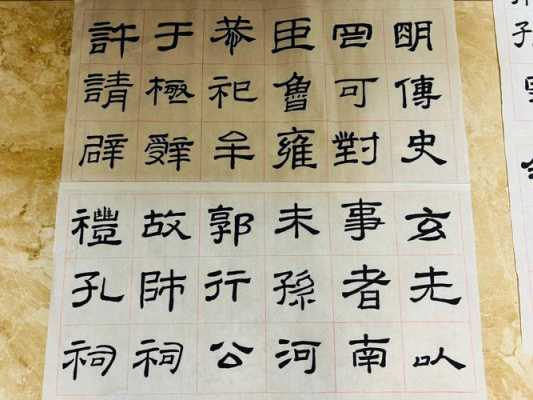 明傳史
可對
臣魯雍
恭祀牟
于極辭
許請辟
玄以
事者南
未孫河
郭行公
故師祠
禮孔祠